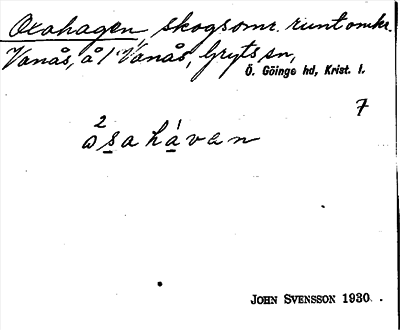 Oxahagen, skogsomr. runt omkr.
Vanås, å / Vanås, Gryts sn,
Ö. Göinge hd, Krist. l.
7
2 1
ωsahávan
JOHN SVENSSON 1930.